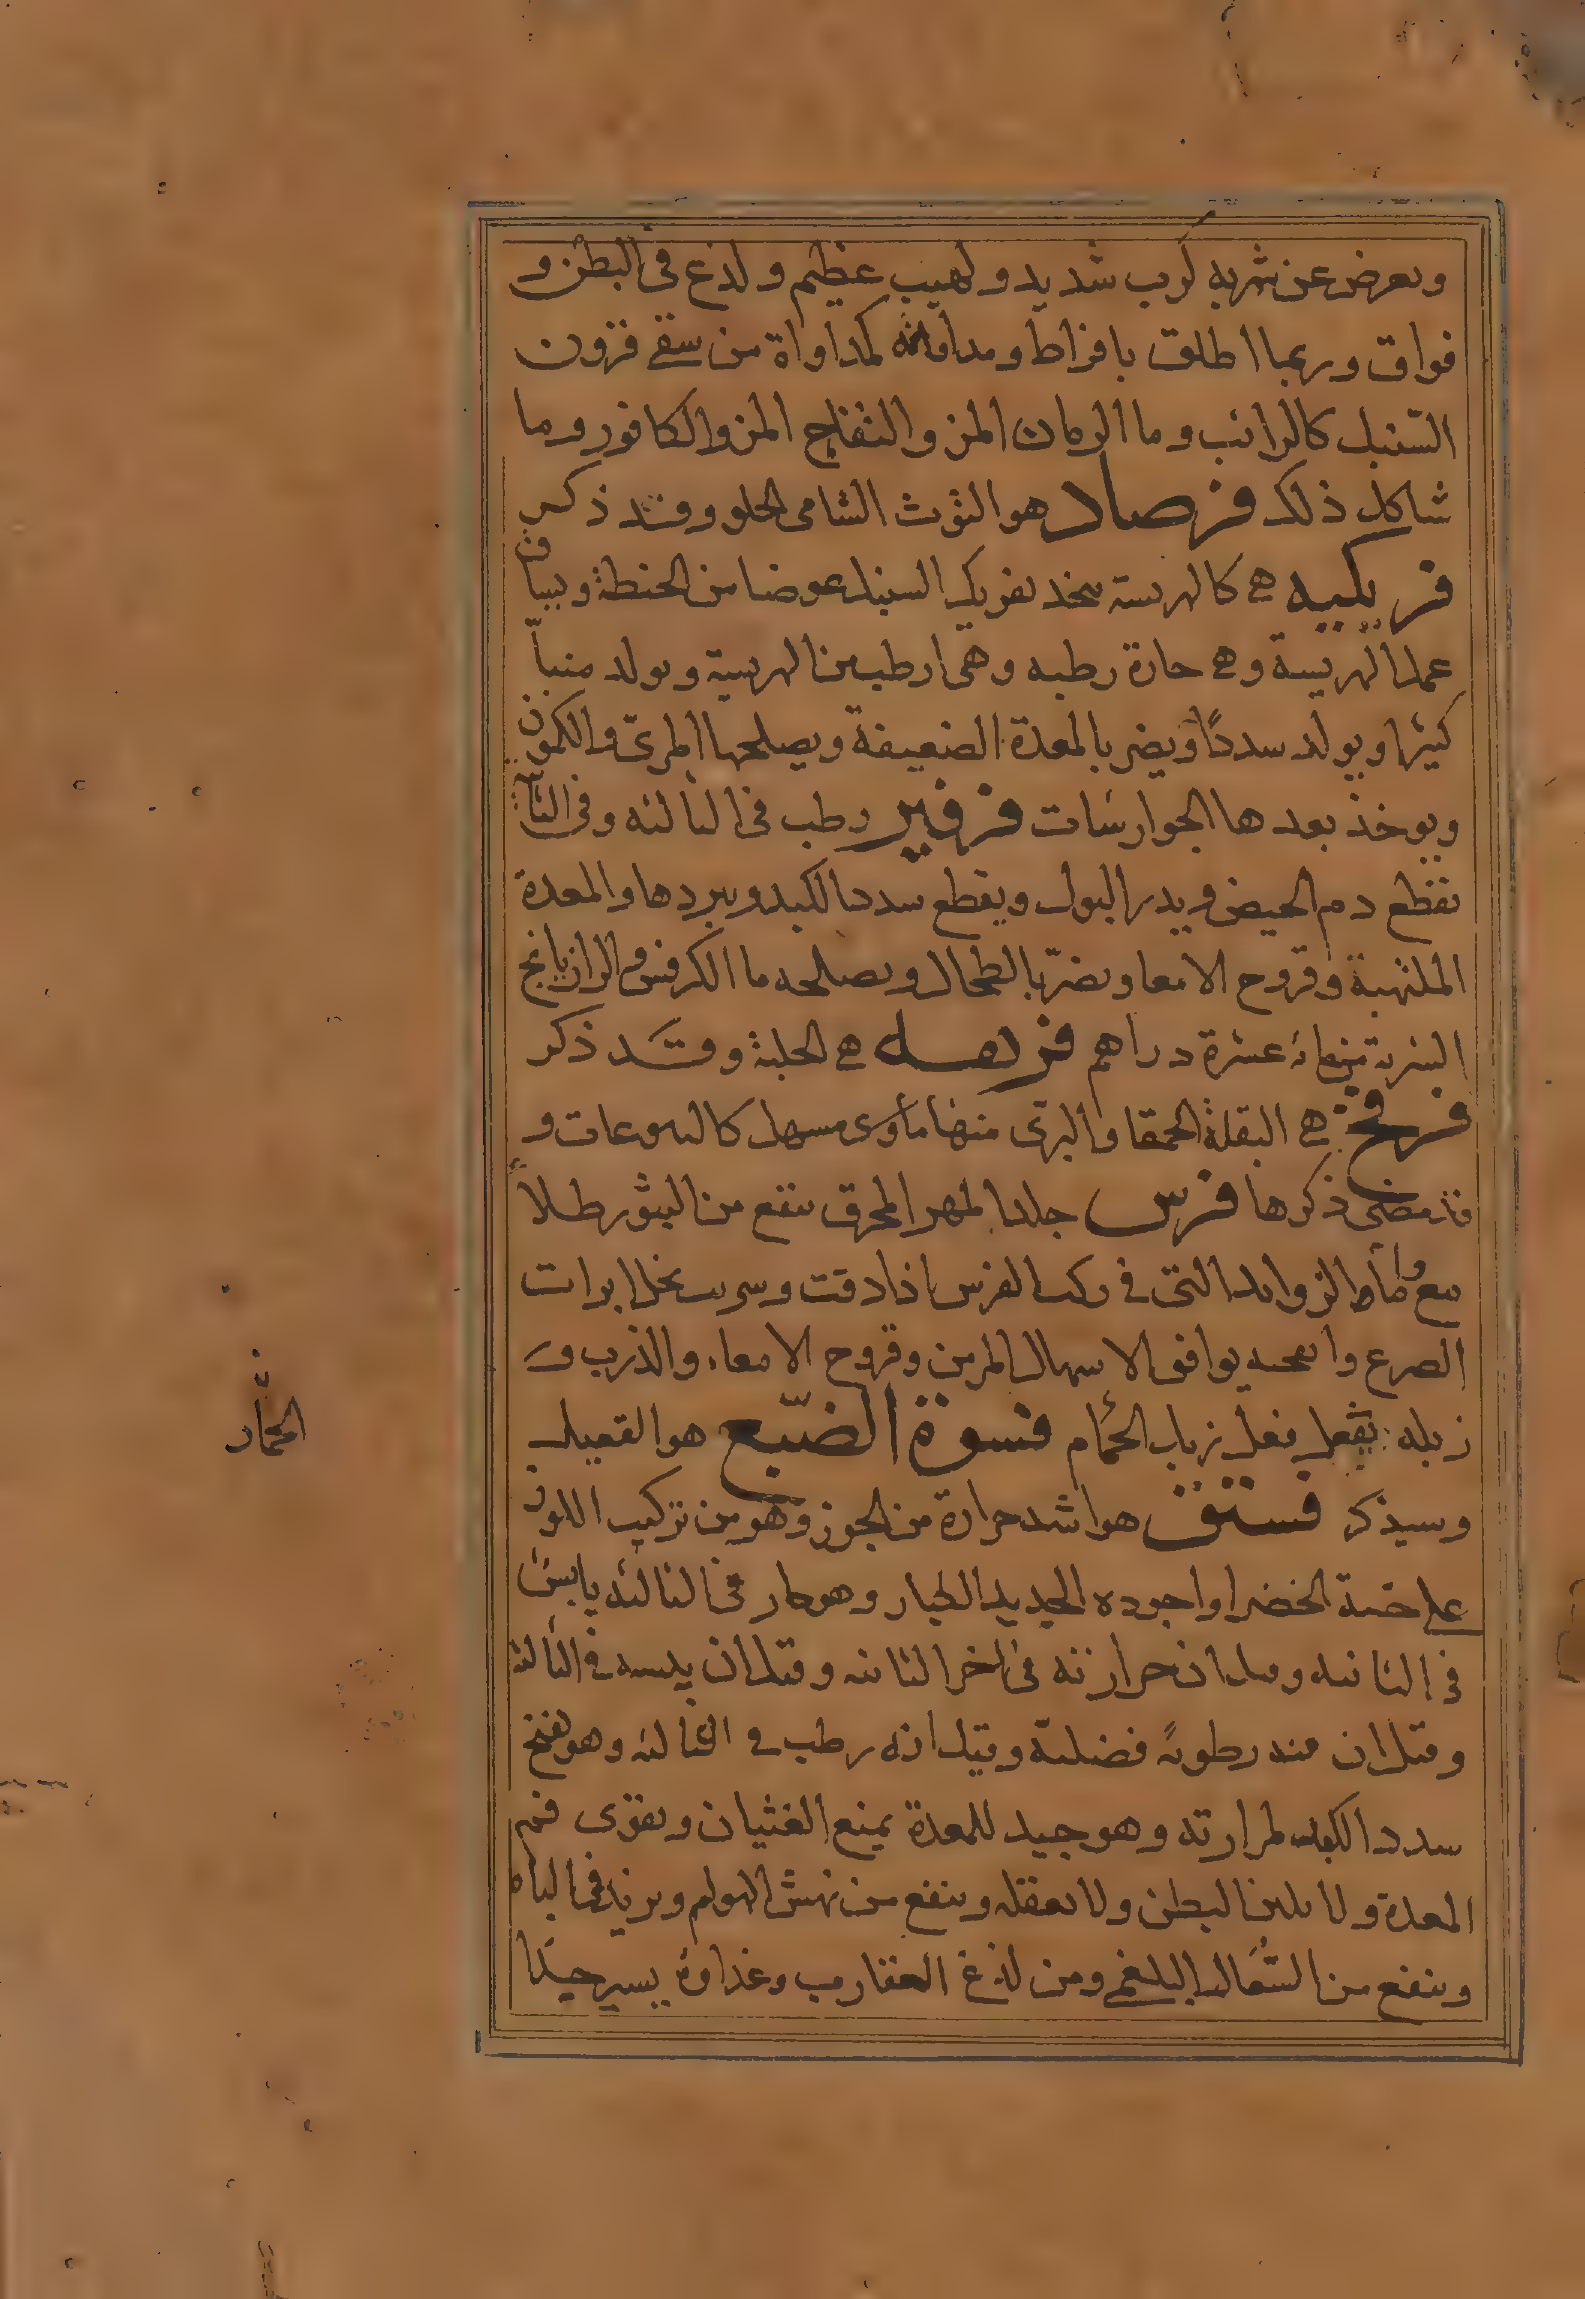 ويعرض عن شربه كرب شديد ولهيب عظيم ولذع في البطن و
فواق وربما اطلق بافراط ومداواته كمداواة من سقى قرون
السنبل كالرائب وما الرمان المز والتفاح المز والكافور وما
شاكل ذلك فرصاد هو التوث الشامي الحلو وقد ذكر
فريكيه هي كالهريسة يتخذ بفريك السنبل عوضا من الحنطة وبياقى
عمل الهريسة وهي حارة رطبه وهي ارطب من الهريسة ويولد منيا
كثيرا ويولد سددًا ويضر بالمعدة الضعيفة ويصلحها المرىّ والكمون
ويوخذ بعدها الجوارشات فرفير رطب في الثالثه وفي
يقطع دم الحيض ويدر البول ويقطع سدد الكبد ويبردها والمعدة
الملتهبة وقروح الامعا ويضرّ بالطحال ويصلحه ما الكرفس والرازيانج
الشربة منه عشرة دراهم هي الحلبة وقد ذكر
فرفخ هي البقلة الحمقا والبرى منها مأوى مسهل كاليتوعات و
قد مضى ذكرها فرس جلد المهر المحرق ينفع من البثور طلاءً
مع ما الزوايد التي في ركب الفرس اذا دقت وشربت بخل ابرات
الصرع وانفحه يوافق الاسهال المزمن وقروح الامعاء والذرب و
زبله يفعل فعل زبل الحمام فسوة الضبّع هو القعبل
وسيذكر فستق هو اشد حرارة من الجوز وهو من تركيب اللوز
على حبة الخضرا واجوده الجديد الكبار وهو حار في الثالثه يابس
في الثانيه وقيل ان حرارته في اخر الثانيه وقيل ان يبسه في الثالثه
وقيل ان فيه رطوبة فضليّة وقيل انه رطب في الثالثه وهو يفتح
سدد الكبد لمرارته وهو جيد للمعدة يمنع الغثيان ويقوى فم
المعدة ولا يلين البطن ولا يعقله وينفع من نهش الهوام ويزيد في الباه
وينفع من السُّعال البلغمي ومن لذغ العقارب وغذاوه يسير جيدا
الحمّار